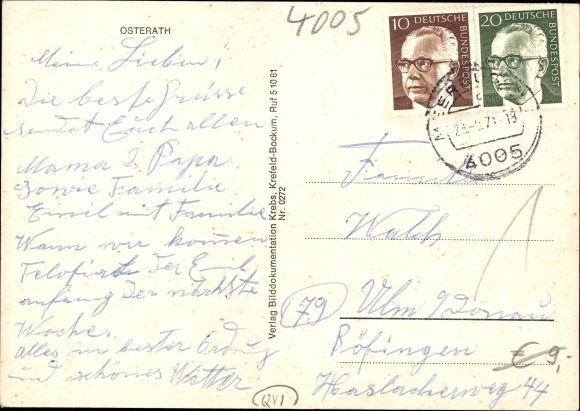 4005
OSTERATH
10 DEUTSCHE BUNDESPOST
20 DEUTSCHE BUNDESPOST
MEER
23.-9.71-18
4005
Meine Lieben!
Die beste Grüsse
sendet Euch allen
Mama & Papa
sowie Familie
Emil mit Familie
Wann wir komen
der Emil
anfang der nächste
Woche.
alles in bester Ordnung
und schönes Wetter
Verlag Bilddokumentation Krebs, Krefeld-Bockum, Ruf 5 10 61
Nr. 0272
Familie
Walch
(79) Ulm/Donau
Böfingen
Haslacherweg 44
€ 9,-
QVI